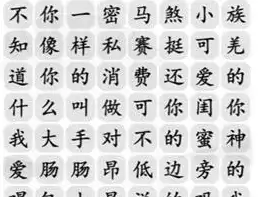 不你一密马煞小族
知像样私赛挺可羌
道你的消费还爱的
什么叫做可你闺你
我大手对不的蜜神
爱肠肠昂低边旁的